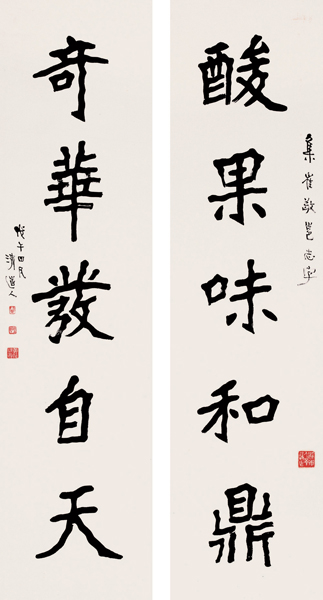 集崔敬邕志字
酸果味和鼎
奇華發自天
戊午四月
清道人